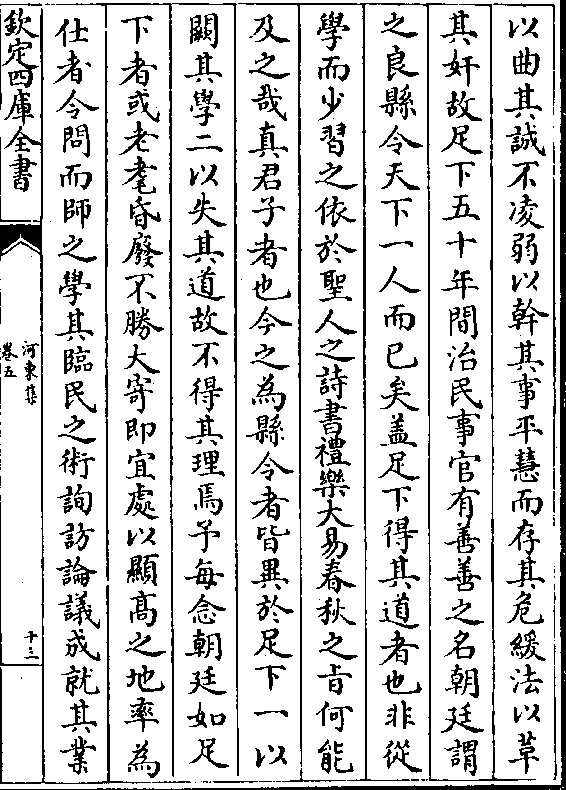 以曲其誠不凌弱以幹其事平慧而存其危緩法以草
其奸故足下五十年間治民事官有善善之名朝廷謂
之良縣令天下一人而已矣蓋足下得其道者也非從
學而少習之依於聖人之詩書禮樂大易春秋之㫖何能
及之哉真君子者也今之為縣令者皆異於足下一以
闕其學二以失其道故不得其理焉予每念朝廷如足
下者或老耄昏廢不勝大寄即宜處以顯髙之地率為
仕者令問而師之學其臨民之術詢訪論議成就其業
欽定四庫全書
河東集
卷五
十三